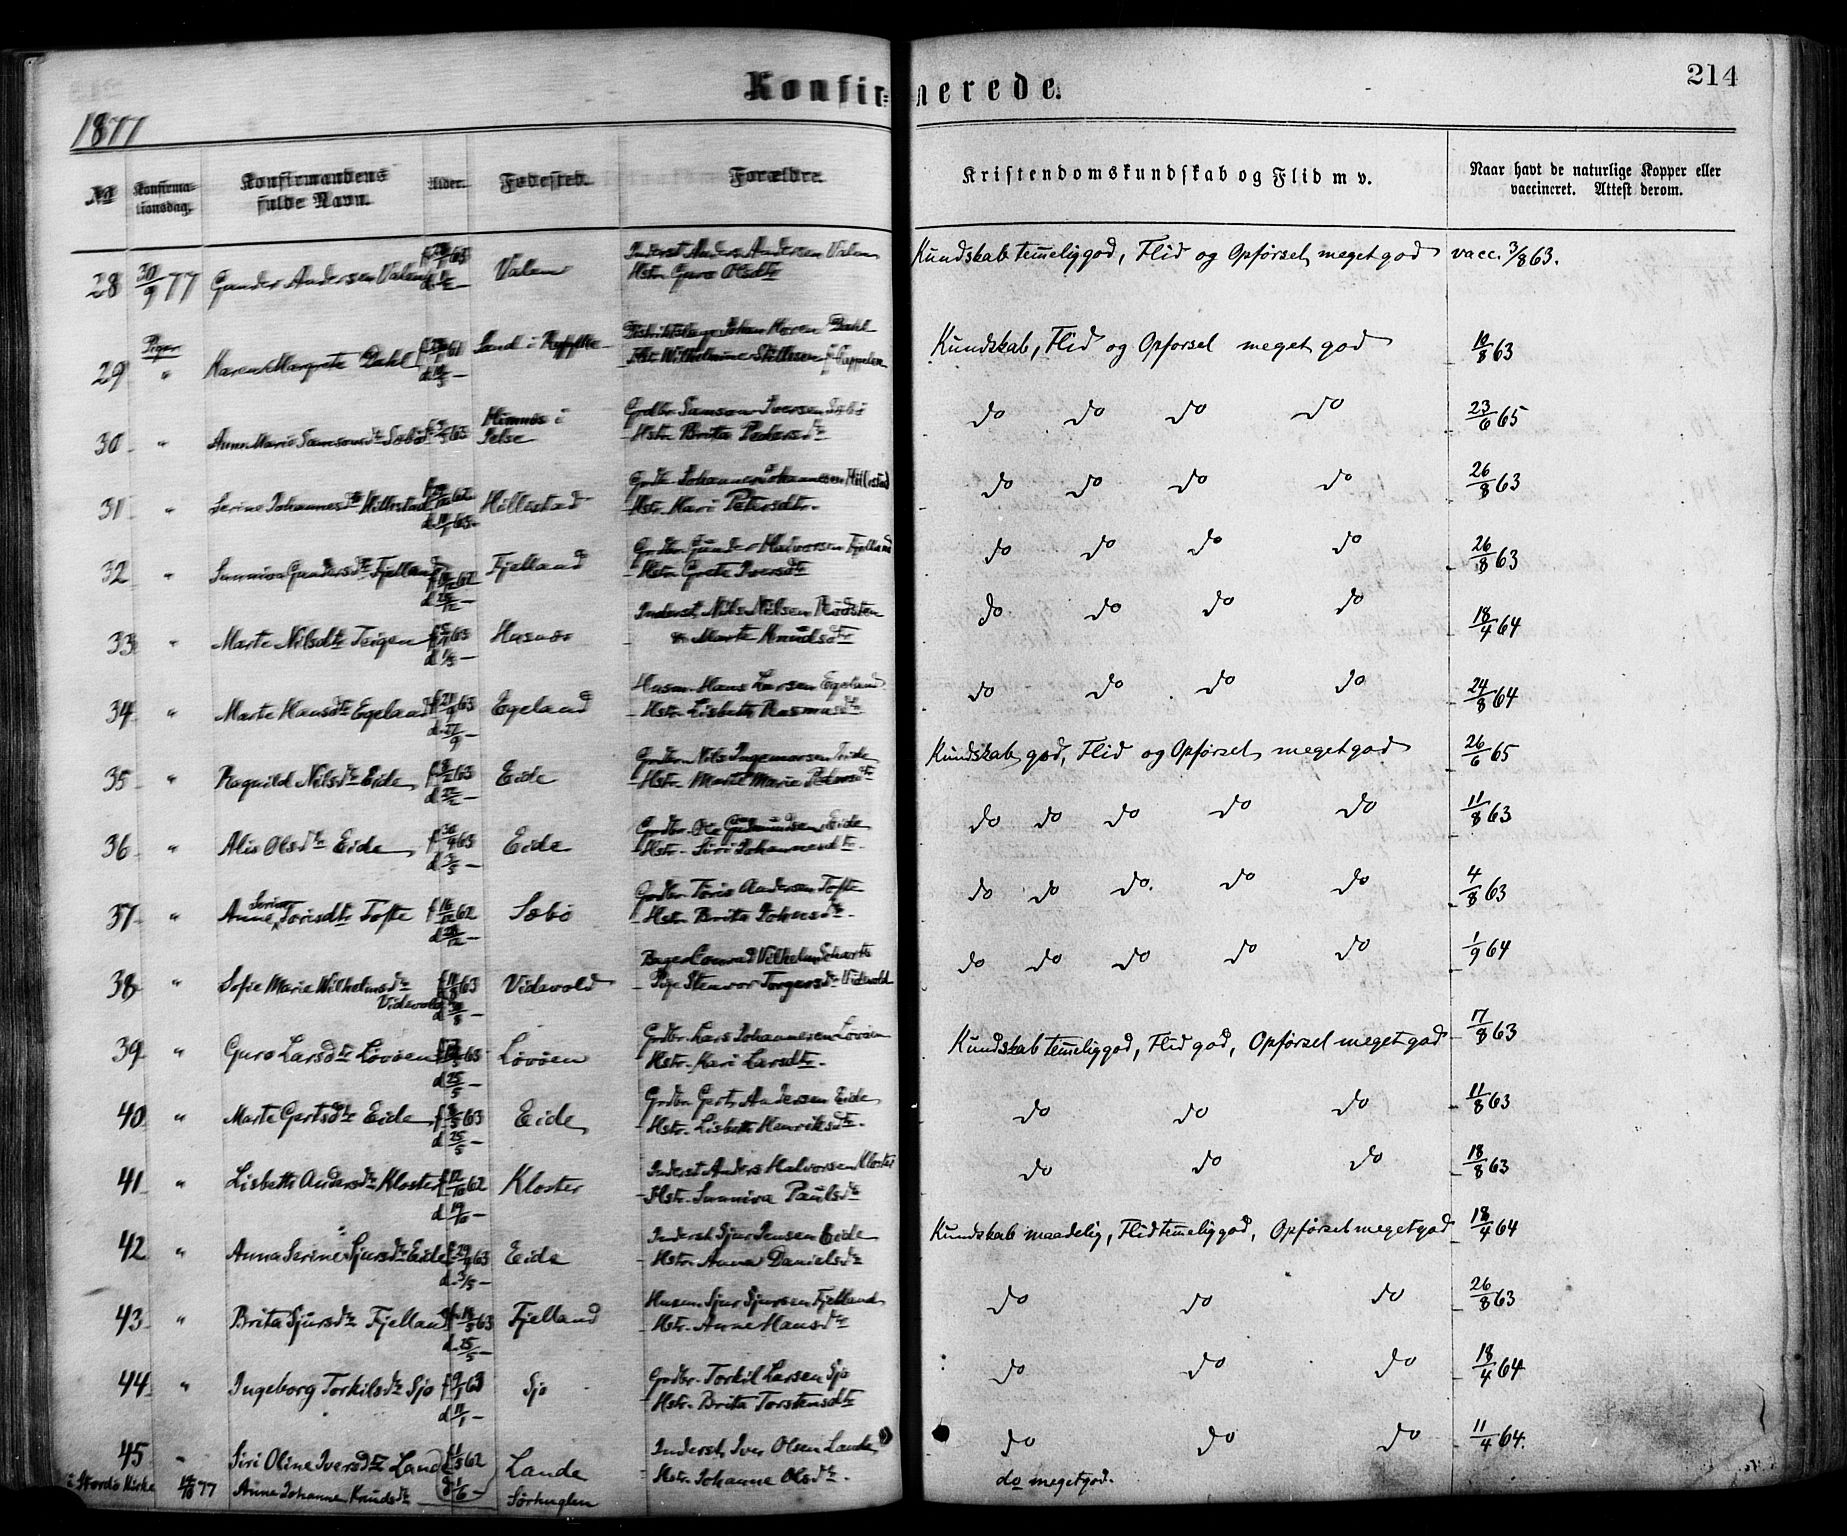 Konfirmerede.
214
1877
No
Konfirma-
tionsdag.
Konfirmandens
fulde Navn.
Alder.
Fødested.
Forældre.
Kristendomskundskab og Flid m v.
Naar havt de naturlige Kopper eller
vaccineret. Attest derom.
28 30/9 77 Gunder Andersen Valen Valen Inderst Anders Andersen Valen
Hstr. Guro Olsdtr
Kundskab temeliggod, Flid og Opførsel meget god vacc. 3/8 63.
Piger
29 " Maren Margrete Dahl Sand i Distriktslæge Johan Koren Dahl
Hstr. Wilhelmine f. Cappelen
Kundskab, Flid og Opførsel meget god 10/8 63
30 " Anne Marie Samsonsdtr Sæbø Grdbr. Samson Iversen Sæbø
Hstr. Brita Pedersdtr
do do do do 23/6 65
31 " Serine Johannesdtr Hillestad Hillestad Grdbr. Johannes Johannesen Hillestad
Hstr. Kari Petersdtr.
do do do do 26/8 63
32 " Sunniva Gundersdtr Fjelland Fjelland Grdbr. Gunder Halvorsen Fjelland
Hstr. Grete Iversdtr
do do do do 26/8 63
33 " Marte Nilsdtr Teigen Inderst Nils Nilsen
Marte Knudsdtr
do do do do 18/4 64
34 " Marte Hansdtr Egeland f 21/9 63 Egeland Husm. Hans Larsen Egeland
d. 27/9 – Hstr. Lisbeth Rasmusdtr
do do do do 24/8 64
35 " Ragnild Nilsdtr Eide Eide Grdbr. Nils Ingemarsen Eide
Hstr. Marte Marie Pedersdtr
Kundskab god, Flid og Opførsel meget god 26/6 65
36 " Alis Olsdtr Eide f 30/4 63 Eide Grdbr. Ole Gudmundsen Eide
d 3/5 – Hstr. Siri Johannesdtr.
do do do do do 11/8 63
37 " Anne Serine Torisdtr Tofte f 16/12 62 Sæbø Grdbr Toris Andersen Tofte
d 28/12 – Hstr. Brita Johnsdtr.
do do do. do do 4/8 63
38 " Sofie Marie Wilhelmsdtr Videvold Bager Conrad Vilhelm
Videvold Pige Stenvor Torgersdtr Videvold
do do do do do 1/9 64
39 " Guro Larsdtr Lovøen Lovøen Grdbr. Lars Johannesen Lovøen
d 25/5 – Hstr. Kari Larsdtr.
Kundskab temeliggod, Flid god, Opførsel meget god 17/8 63
40 " Marte Gertsdtr Eide f 8/5 63 Eide Grdbr. Gert Andersen Eide
d 25/5 – Hstr. Lisbeth Henriksdtr.
do do do 11/8 63
41 " Lisbeth Andersdtr Kloster f 12/10 62 Kloster Inderst Anders Halvorsen Kloster
d 19/10 – Hstr. Sunniva Paulsdtr
do do do 18/8 63
42 " Anna Serine Sjursdtr Eide f 29/4 63 Eide Inderst Sjur Jensen Eide
d. 3/5 – Hstr. Anna Danielsdtr
Kundskab maadelig, Flid temeliggod, Opførsel meget god 18/4 64
43 " Brita Sjursdtr Fjelland Fjelland Husm. Sjur Sjursen Fjelland
d. 25/5 – Hstr. Anne Hansdtr
do do do 26/8 63
44 " Ingeborg Torkilsdtr Sjo f 9/1 63 Sjo Grdbr. Torkil Larsen Sjo
d 11/1 – Hstr. Brita Torstensdtr
do do do 18/4 64
45 " Siri Oline Iversdtr Lande Lande Inderst Iver Olsen Lande
Hstr. Johanne Olsdtr.
do do do 11/4 64.
i Stordø Kirke 77 Anne Johanne Knudsdtr Sørhuglen do meget god.